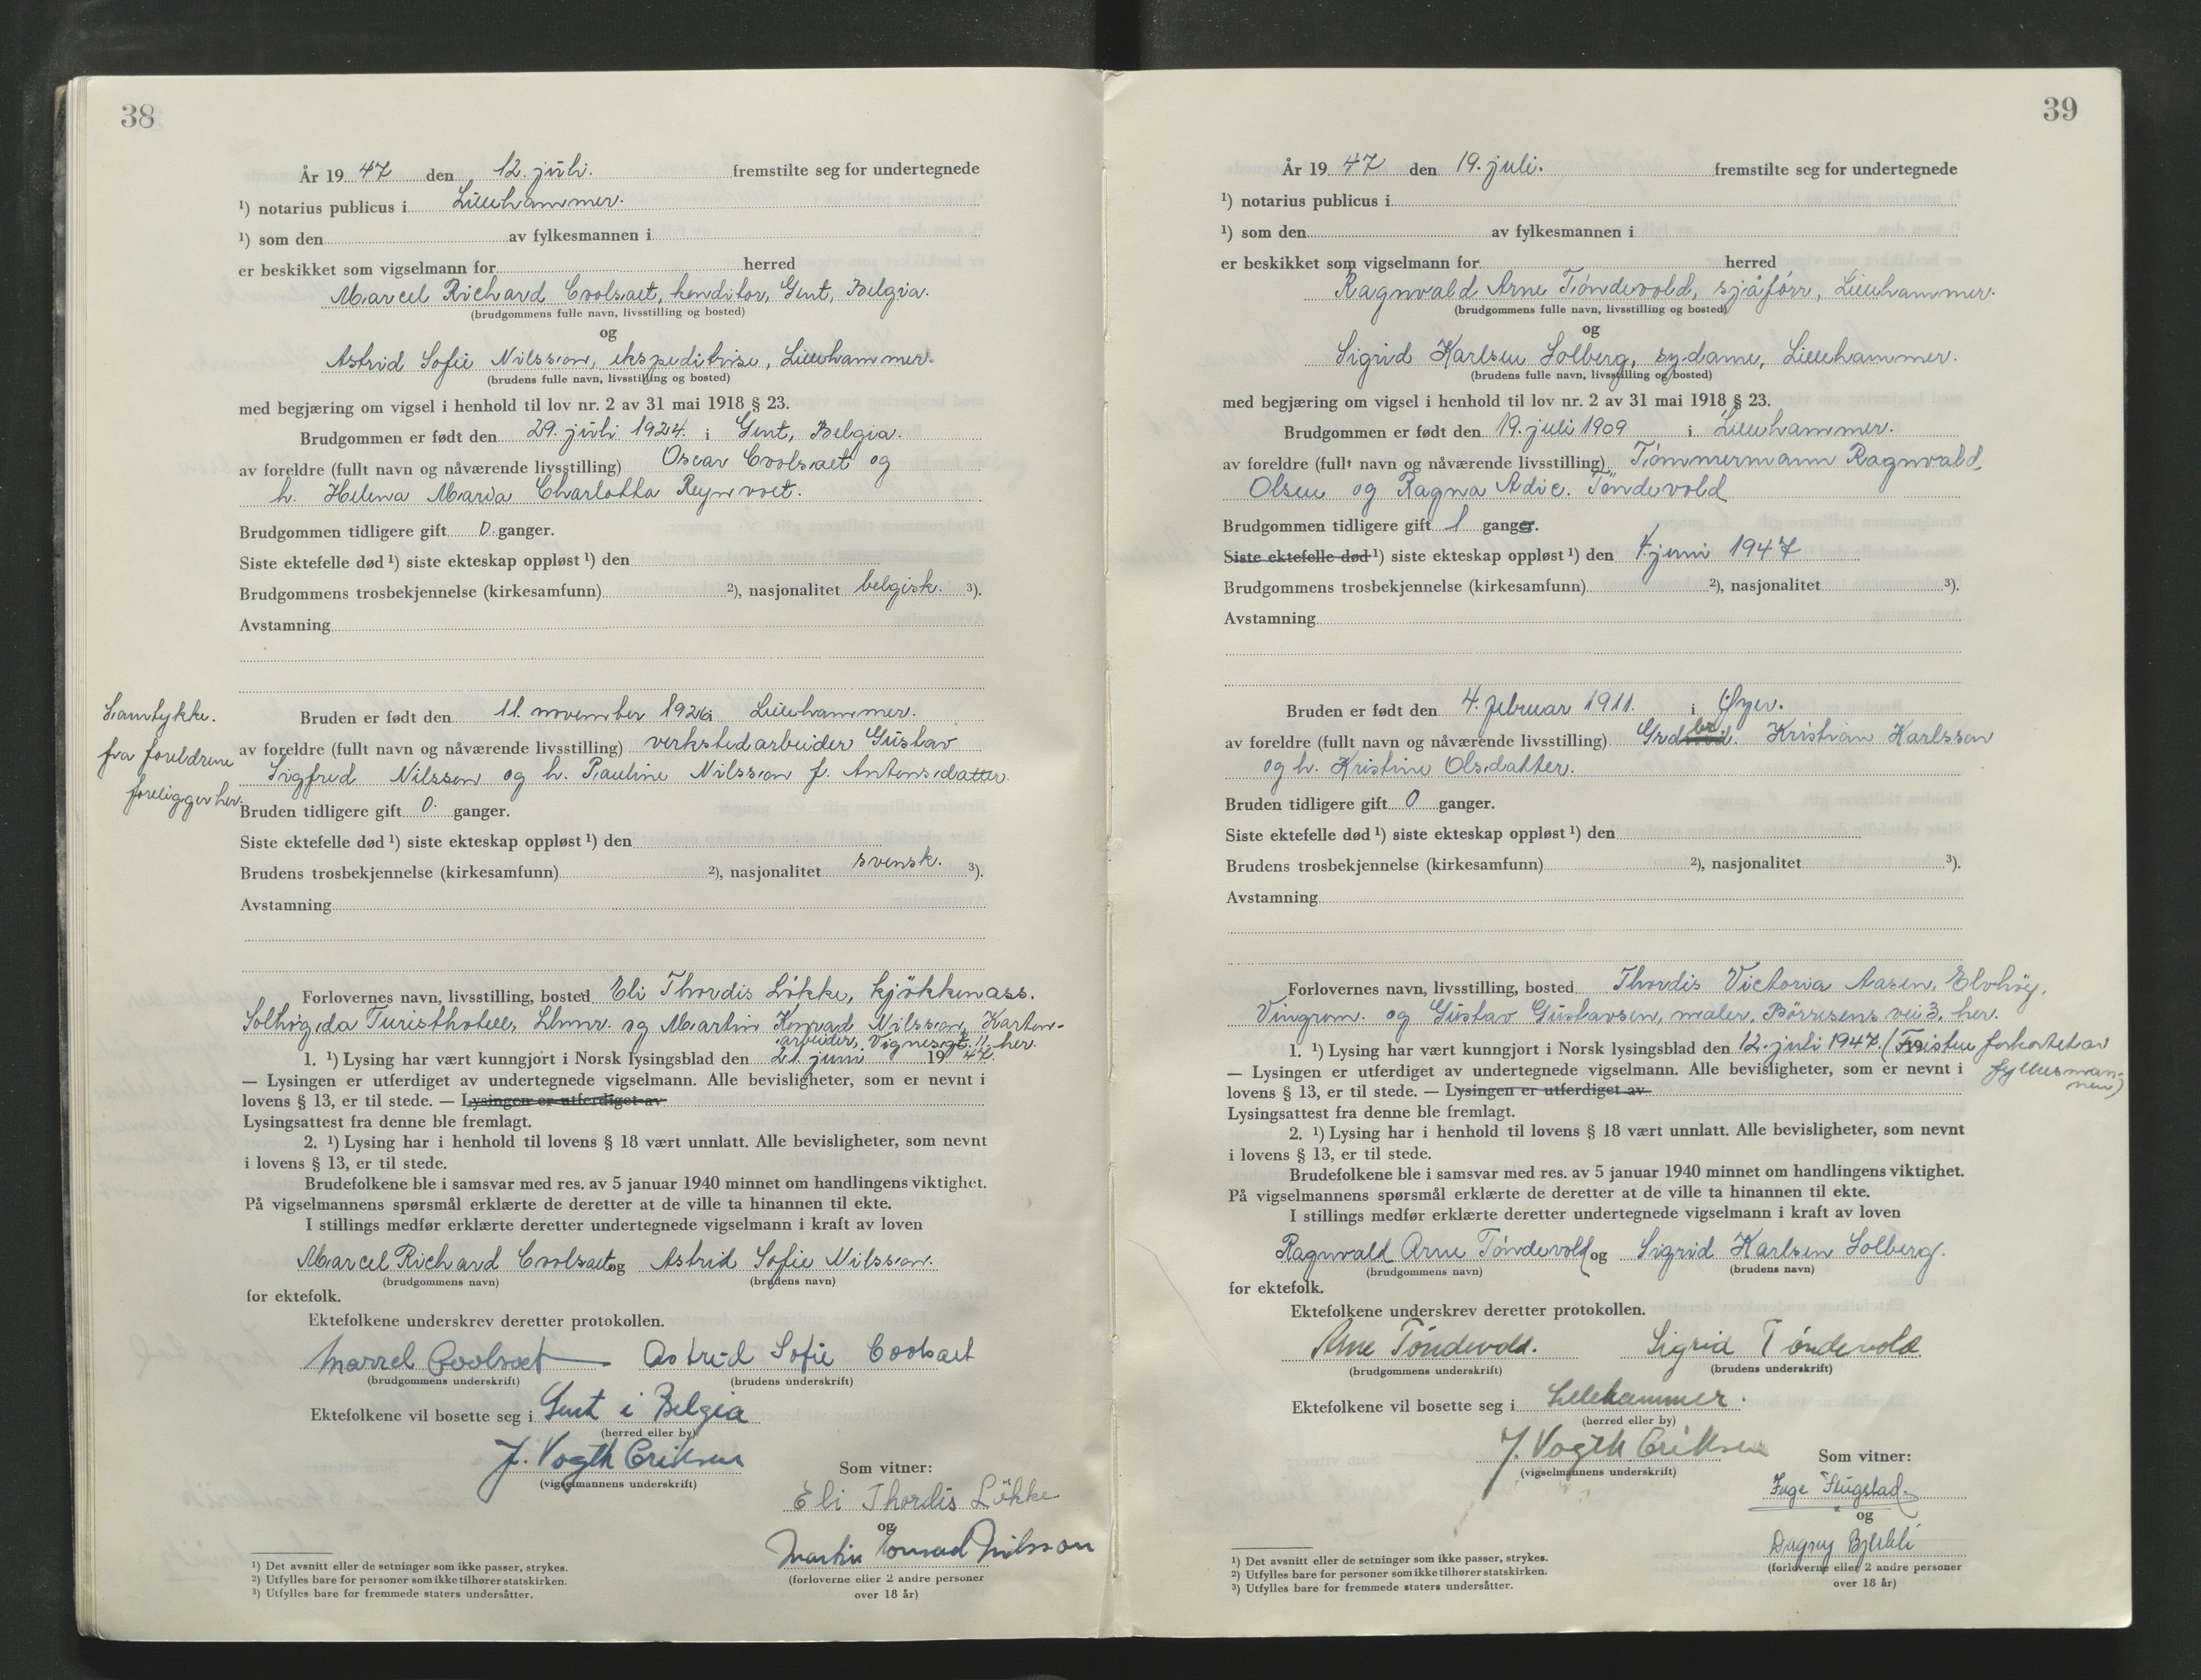 38
År 1947 den 12. juli. fremstilte seg for undertegnede
¹) notarius publicus i Lillehammer.
¹) som den av fylkesmannen i
er beskikket som vigselmann for herred
Marcel Richard Coolsaet, konditor, Gent, Belgia.
(brudgommens fulle navn, livsstilling og bosted)
og
Astrid Sofie Nilsson, ekspeditrise, Lillehammer.
(brudens fulle navn, livsstilling og bosted)
med begjæring om vigsel i henhold til lov nr. 2 av 31 mai 1918 § 23.
Brudgommen er født den 29. juli 1924. i Gent, Belgia.
av foreldre (fullt navn og nåværende livsstilling) Oscar Coolsaet og
h. Helena Maria Charlotta Reynvoet.
Brudgommen tidligere gift 0 ganger.
Siste ektefelle død ¹) siste ekteskap oppløst ¹) den
Brudgommens trosbekjennelse (kirkesamfunn) ²), nasjonalitet belgisk. ³).
Avstamning
Samtykke.
fra foreldrene
foreligger her.
Bruden er født den 11. november 1926 i Lillehammer.
av foreldre (fullt navn og nåværende livsstilling) verkstedarbeider Gustav
Sigfred Nilsson og h. Pauline Nilsson f. Antonsdatter.
Bruden tidligere gift 0. ganger.
Siste ektefelle død ¹) siste ekteskap oppløst ¹) den
Brudens trosbekjennelse (kirkesamfunn) ²), nasjonalitet svensk. ³).
Avstamning
Forlovernes navn, livsstilling, bosted Eli Thordis Lökke, kjökkenass.
Turisthotell, Lhmr. og Martin Konrad Nilsson, Karton-
arbeider, Vignesgt. 11, her.
1. ¹) Lysing har vært kunngjort i Norsk lysingsblad den 21. juni 1947.
— Lysingen er utferdiget av undertegnede vigselmann. Alle bevisligheter, som er nevnt i
lovens § 13, er til stede. — Lysingen er utferdiget av
Lysingsattest fra denne ble fremlagt.
2. ¹) Lysing har i henhold til lovens § 18 vært unnlatt. Alle bevisligheter, som nevnt
i lovens § 13, er til stede.
Brudefolkene ble i samsvar med res. av 5 januar 1940 minnet om handlingens viktighet.
På vigselmannens spørsmål erklærte de deretter at de ville ta hinannen til ekte.
I stillings medfør erklærte deretter undertegnede vigselmann i kraft av loven
Marcel Richard Coolsaet og Astrid Sofie Nilsson.
(brudgommens navn) (brudens navn)
for ektefolk.
Ektefolkene underskrev deretter protokollen.
Marcel Coolsaet Astrid Sofie Coolsaet
(brudgommens underskrift) (brudens underskrift)
Ektefolkene vil bosette seg i Gent i Belgia
(herred eller by)
J. Vogth Eriksen
(vigselmannens underskrift)
Som vitner:
Eli Thordis Lökke
og
Martin Konrad Nilsson
(forloverne eller 2 andre personer
over 18 år)
¹) Det avsnitt eller de setninger som ikke passer, strykes.
²) Utfylles bare for personer som ikke tilhører statskirken.
³) Utfylles bare for fremmede staters undersåtter.
39
År 1947 den 19. juli. fremstilte seg for undertegnede
¹) notarius publicus i
¹) som den av fylkesmannen i
er beskikket som vigselmann for herred
Ragnvald Arne Töndevold, sjåförr, Lillehammer.
(brudgommens fulle navn, livsstilling og bosted)
og
Sigrid Karlsen Solberg, sydame, Lillehammer.
(brudens fulle navn, livsstilling og bosted)
med begjæring om vigsel i henhold til lov nr. 2 av 31 mai 1918 § 23.
Brudgommen er født den 19. juli 1909 i Lillehammer.
av foreldre (fullt navn og nåværende livsstilling) Tömmermann Ragnvald
Olsen og Ragna Töndevold
Brudgommen tidligere gift 1 ganger.
Siste ektefelle død ¹) siste ekteskap oppløst ¹) den 4. juni 1947
Brudgommens trosbekjennelse (kirkesamfunn) ²), nasjonalitet ³).
Avstamning
Bruden er født den 4. februar 1911. i Øyer.
av foreldre (fullt navn og nåværende livsstilling) Grdbr. Kristian Karlsson
og h. Kristine Olsdatter.
Bruden tidligere gift 0 ganger.
Siste ektefelle død ¹) siste ekteskap oppløst ¹) den
Brudens trosbekjennelse (kirkesamfunn) ²), nasjonalitet ³).
Avstamning
Forlovernes navn, livsstilling, bosted Thordis Victoria Aasen, Elvhöy,
Vingrom. og Gustav Gustavsen, maler, Börresens vei 3, her.
1. ¹) Lysing har vært kunngjort i Norsk lysingsblad den 12. juli 1947. (Fristen forkortet av
fylkesman-
nen)
— Lysingen er utferdiget av undertegnede vigselmann. Alle bevisligheter, som er nevnt i
lovens § 13, er til stede. — Lysingen er utferdiget av
Lysingsattest fra denne ble fremlagt.
2. ¹) Lysing har i henhold til lovens § 18 vært unnlatt. Alle bevisligheter, som nevnt
i lovens § 13, er til stede.
Brudefolkene ble i samsvar med res. av 5 januar 1940 minnet om handlingens viktighet.
På vigselmannens spørsmål erklærte de deretter at de ville ta hinannen til ekte.
I stillings medfør erklærte deretter undertegnede vigselmann i kraft av loven
Ragnvald Arne Töndevold og Sigrid Karlsen Solberg.
(brudgommens navn) (brudens navn)
for ektefolk.
Ektefolkene underskrev deretter protokollen.
Arne Töndevold. Sigrid Töndevold
(brudgommens underskrift) (brudens underskrift)
Ektefolkene vil bosette seg i Lillehammer.
(herred eller by)
J. Vogth Eriksen
(vigselmannens underskrift)
Som vitner:
Inge Flugstad.
og
Dagny
(forloverne eller 2 andre personer
over 18 år)
¹) Det avsnitt eller de setninger som ikke passer, strykes.
²) Utfylles bare for personer som ikke tilhører statskirken.
³) Utfylles bare for fremmede staters undersåtter.